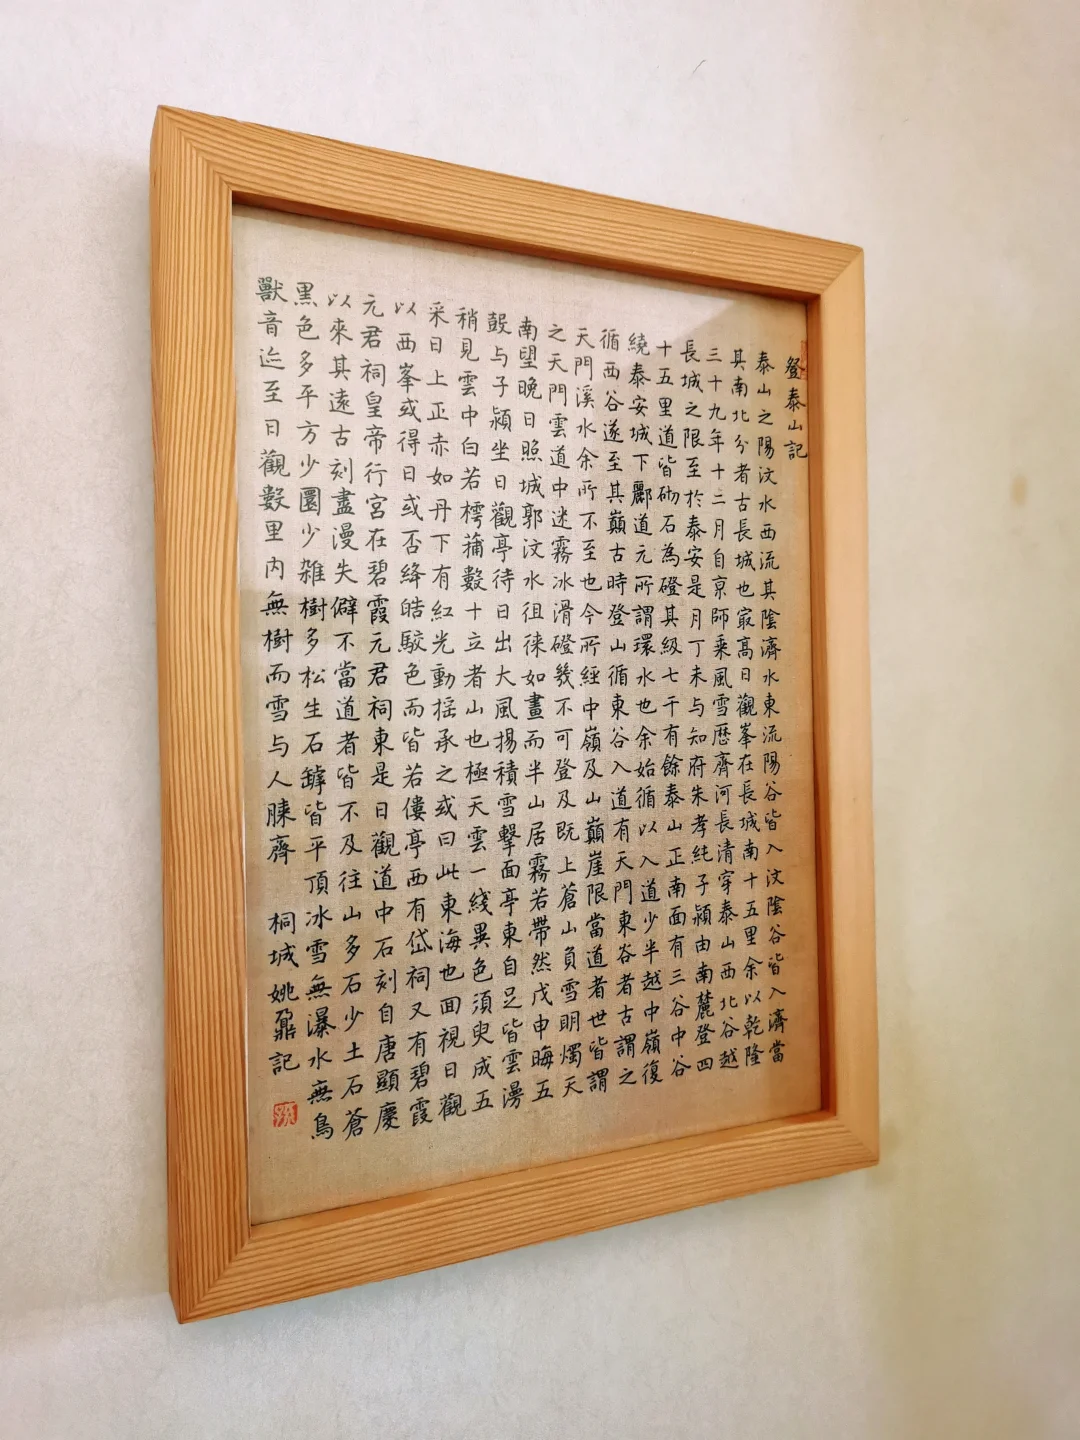 登泰山記
泰山之陽汶水西流其陰濟水東流陽谷皆入汶陰谷皆入濟當
其南北分者古長城也最高日觀峯在長城南十五里余以乾隆
三十九年十二月自京師乘風雪歷齊河長清穿泰山西北谷越
長城之限至於泰安是月丁未与知府朱孝純子潁由南麓登四
十五里道皆砌石為磴其級七千有餘泰山正南面有三谷中谷
繞泰安城下酈道元所謂環水也余始循以入道少半越中嶺復
循西谷遂至其巔古時登山循東谷入道有天門東谷者古謂之
天門溪水余所不至也今所經中嶺及山巔崖限當道者世皆謂
之天門雲道中迷霧冰滑磴幾不可登及既上蒼山負雪明燭天
南望晚日照城郭汶水徂徠如畫而半山居霧若帶然戊申晦五
鼓与子潁坐日觀亭待日出大風揚積雪擊面亭東自足皆雲漫
稍見雲中白若樗蒱數十立者山也極天雲一綫異色須臾成五
采日上正赤如丹下有紅光動揺承之或曰此東海也回視日觀
以西峯或得日或否絳皓駮色而皆若僂亭西有岱祠又有碧霞
元君祠皇帝行宮在碧霞元君祠東是日觀道中石刻自唐顯慶
以來其遠古刻盡漫失僻不當道者皆不及往山多石少土石蒼
黑色多平方少圜少雜樹多松生石罅皆平頂冰雪無瀑水無鳥
獸音迹至日觀數里内無樹而雪与人膝齊 桐城姚鼐記